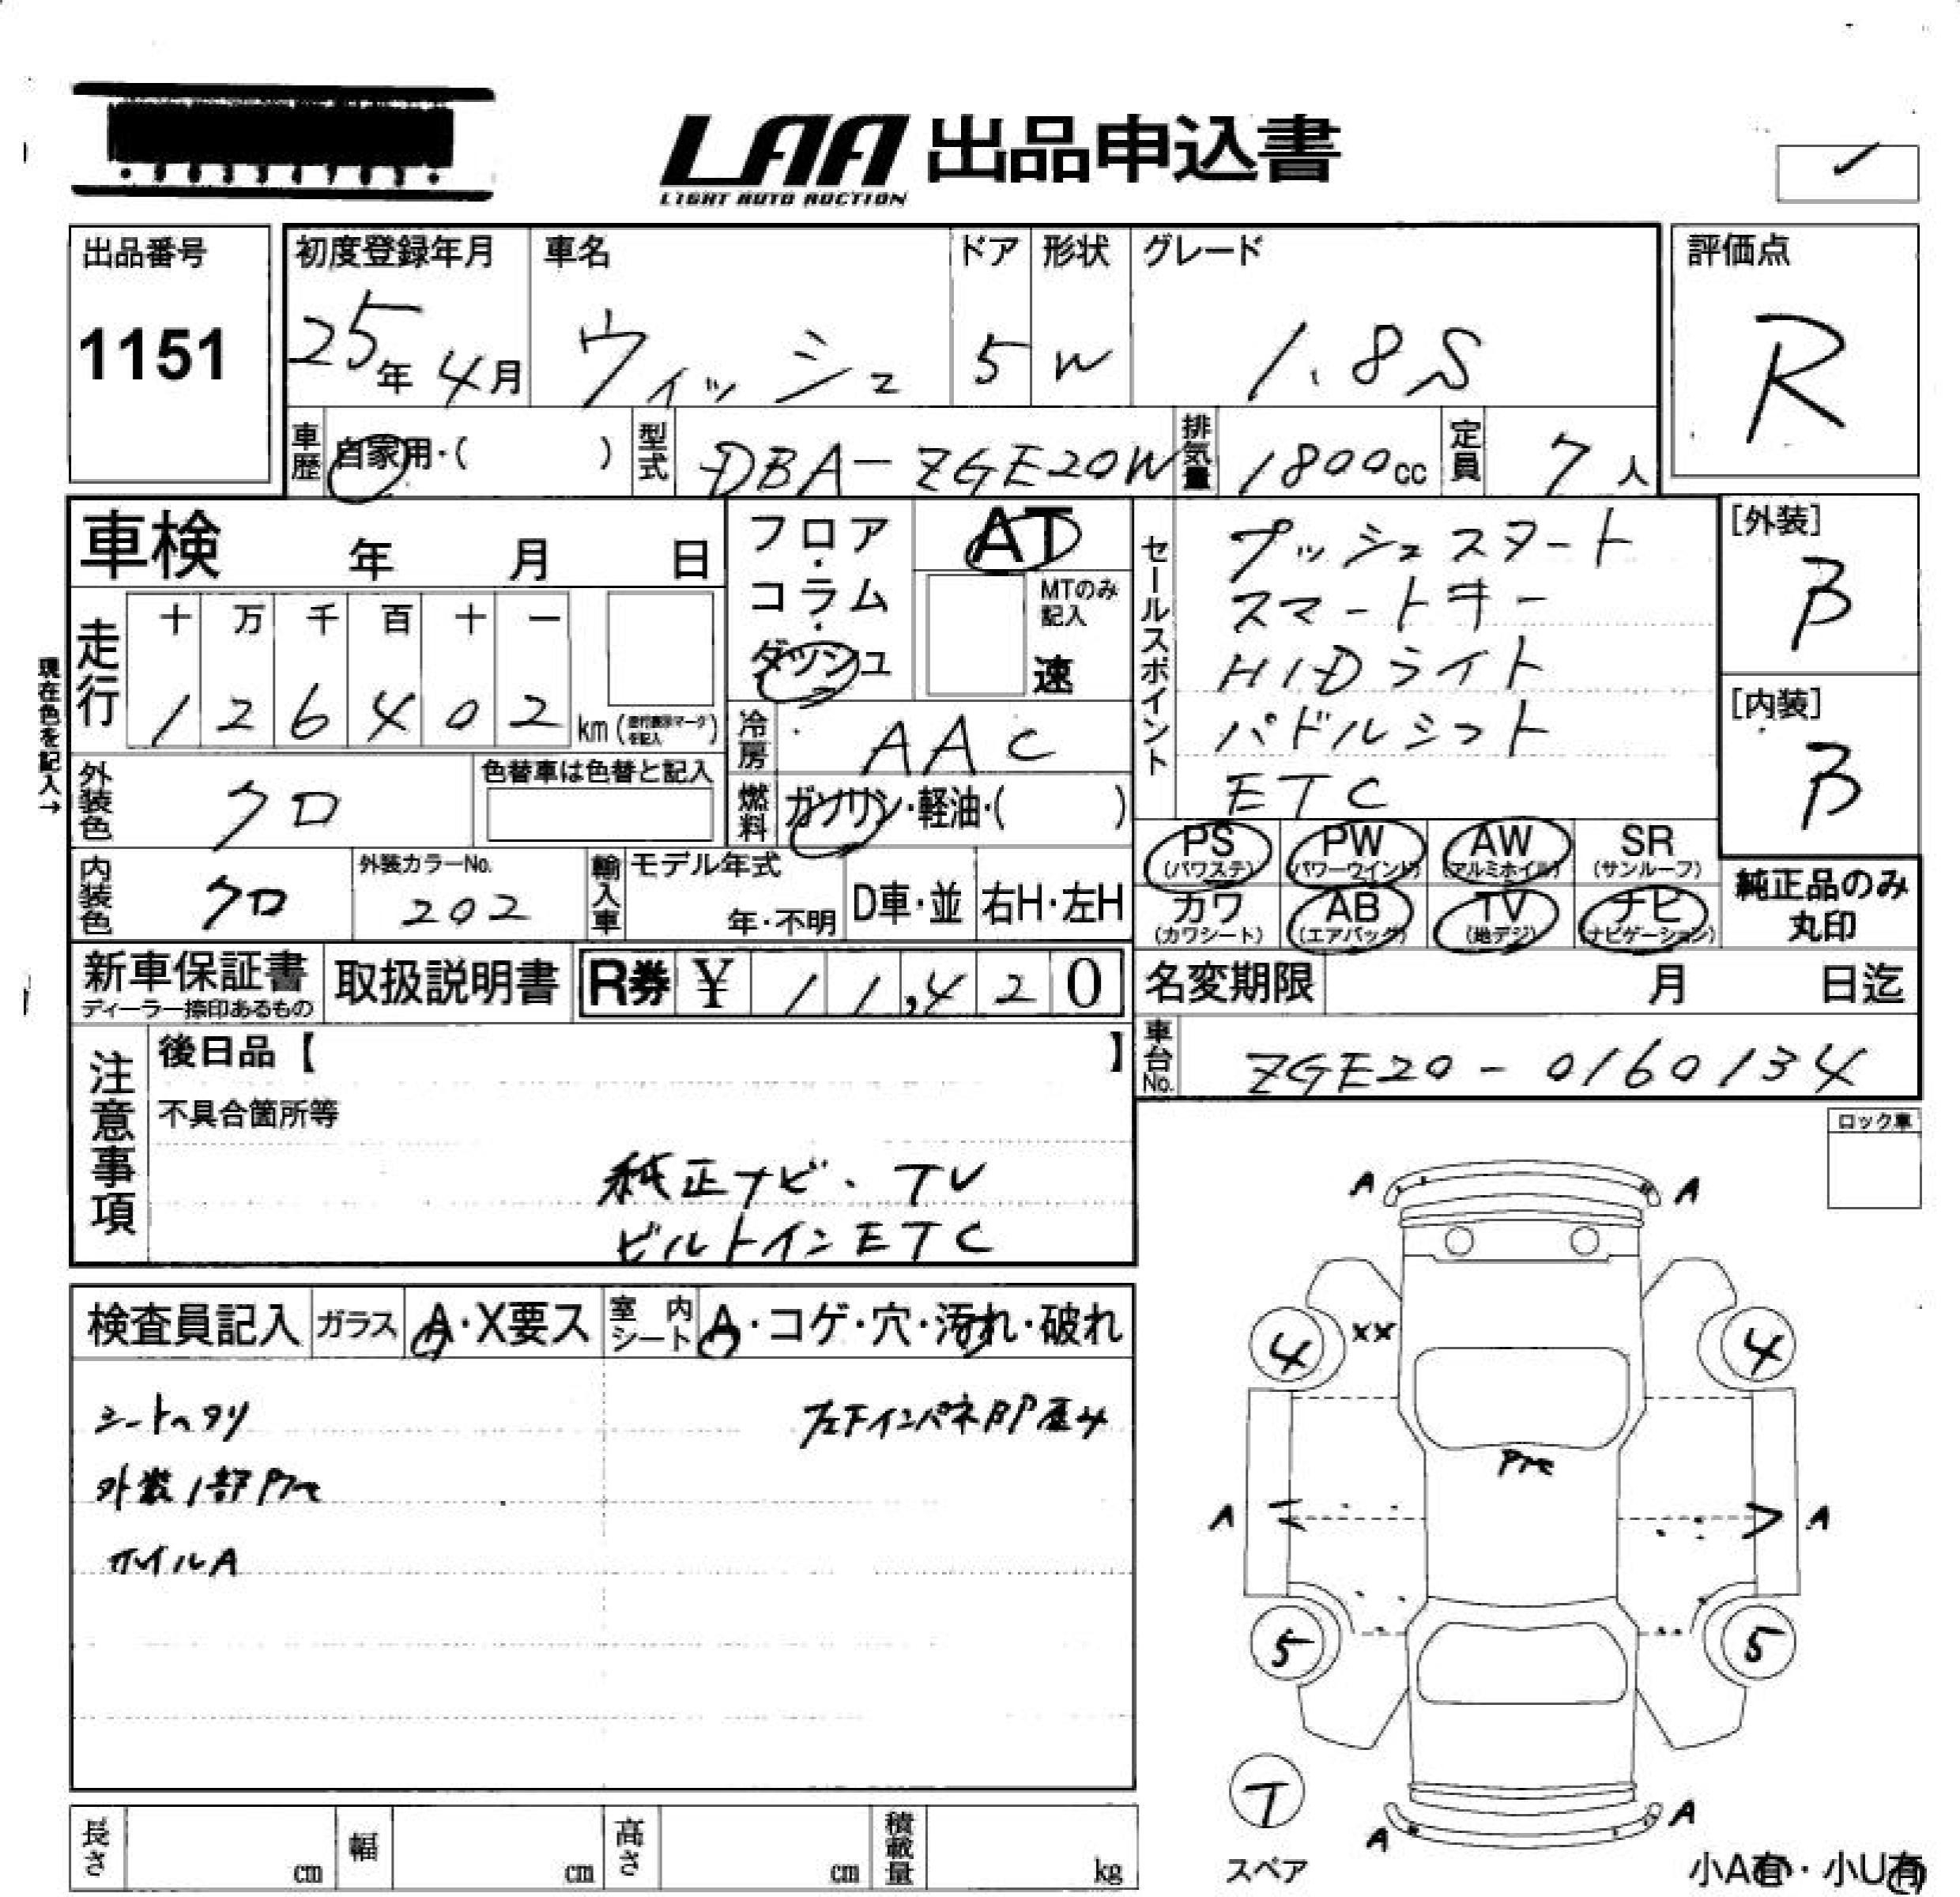 LAA 出品申込書
LIGHT AUTO AUCTION
出品番号
1151
初度登録年月
25年4月
車名
ウィッシュ
ドア
5
形状
W
グレード
1.8S
評価点
R
車歴
自家用・( )
型式
DBA-ZGE20W
排気量
1800cc
定員
7人
車検 年 月 日
現在色を記入→
走行
十万千百十一
126402
km(走行表示マークを記入)
外装色
クロ
色替車は色替と記入
内装色
クロ
外装カラーNo.
202
輸入車
モデル年式
年・不明
D車・並
右H・左H
フロア・コラム・ダッシュ
AT
MTのみ記入
速
冷房
AAC
燃料
ガソリン・軽油・( )
セールスポイント
プッシュスタート
スマートキー
HIDライト
パドルシフト
ETC
[外装]
B
[内装]
B
PS
(パワステ)
PW
(パワーウインド)
AW
(アルミホイル)
SR
(サンルーフ)
カワ
(カワシート)
AB
(エアバッグ)
TV
(地デジ)
ナビ
(ナビゲーション)
純正品のみ
丸印
新車保証書
ディーラー捺印あるもの
取扱説明書
R券 ¥ 11,420
名変期限 月 日迄
車台No.
ZGE20-0160134
注意事項
後日品【 】
不具合箇所等
純正ナビ・TV
ビルトインETC
ロック車
検査員記入
ガラス
A・X要ス
室内シート
A・コゲ・穴・汚れ・破れ
シートヘタリ
左下インパネBP歪み
外装1部Pre
ホイルA
A
A
4
XX
4
Pre
A
A
5
5
T
スペア
A
A
小A有・小U有
長さ cm
幅 cm
高さ cm
積載量 kg